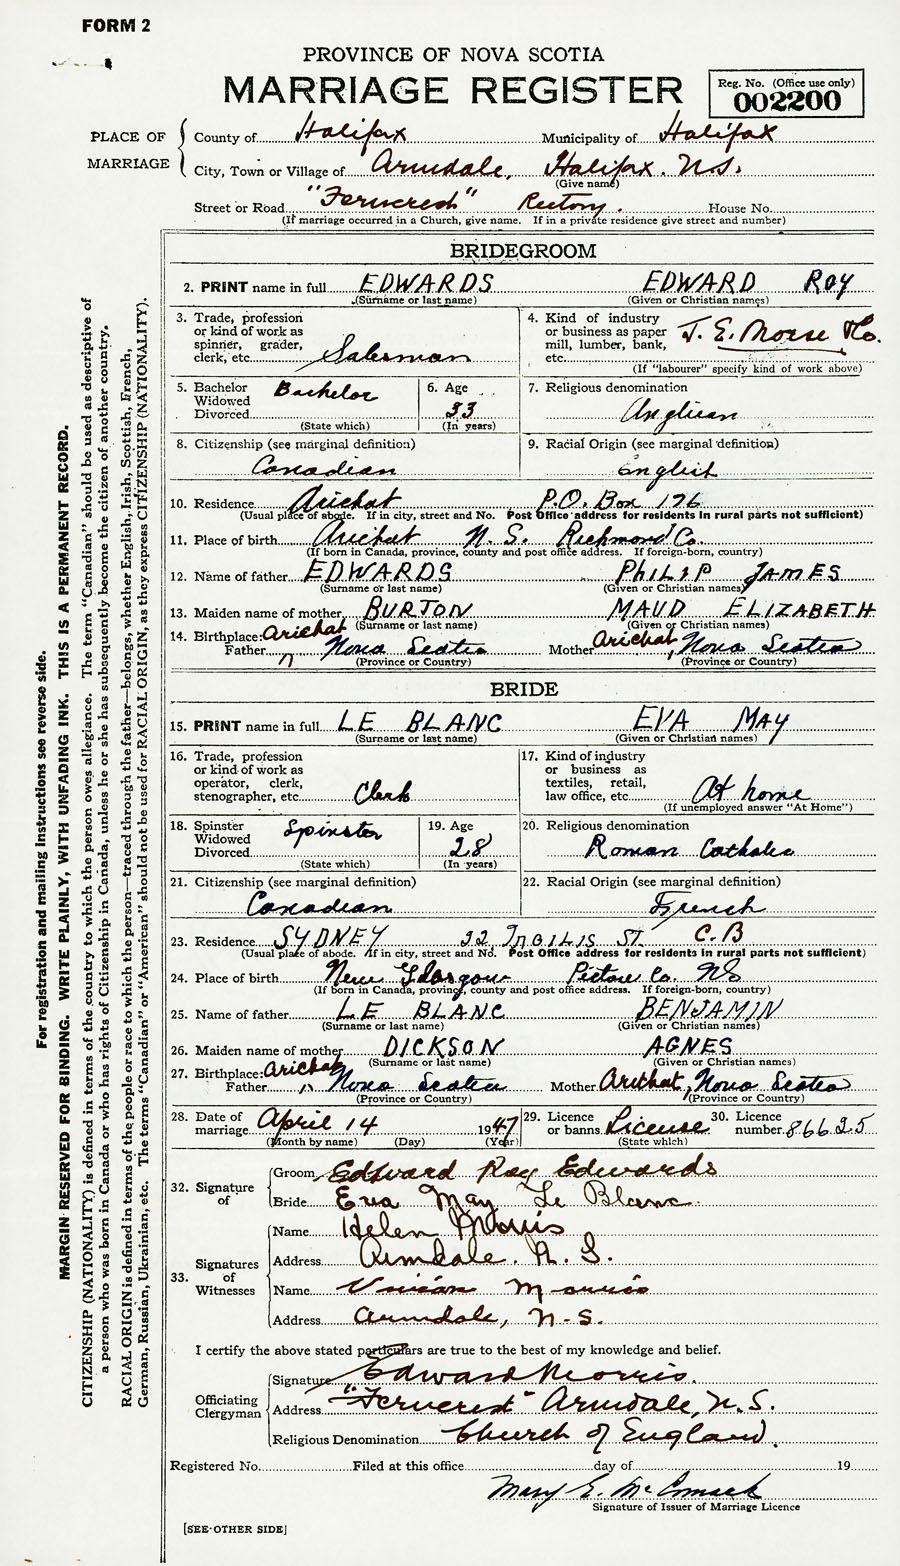 FORM 2
PROVINCE OF NOVA SCOTIA
MARRIAGE REGISTER
Reg. No. (Office use only)
002200
PLACE OF MARRIAGE
County of Halifax Municipality of Halifax
City, Town or Village of Armdale, Halifax. N.S.
(Give name)
Street or Road "Ferncrest" Rectory. House No.
(If marriage occurred in a Church, give name. If in a private residence give street and number)
BRIDEGROOM
2. PRINT name in full EDWARDS EDWARD ROY
(Surname or last name) (Given or Christian names)
3. Trade, profession or kind of work as spinner, grader, clerk, etc. Salesman
4. Kind of industry or business as paper mill, lumber, bank, etc. J. E. Morse & Co.
(If "labourer" specify kind of work above)
5. Bachelor Widowed Divorced Bachelor
(State which)
6. Age 33
(In years)
7. Religious denomination
Anglican
8. Citizenship (see marginal definition)
Canadian
9. Racial Origin (see marginal definition)
English
10. Residence Arichat P.O. Box 176
(Usual place of abode. If in city, street and No. Post Office address for residents in rural parts not sufficient)
11. Place of birth Arichat N. S. Richmond Co.
(If born in Canada, province, county and post office address. If foreign-born, country)
12. Name of father EDWARDS PHILIP JAMES
(Surname or last name) (Given or Christian names)
13. Maiden name of mother BURTON MAUD ELIZABETH
(Surname or last name) (Given or Christian names)
14. Birthplace: Father Arichat, Nova Scotia Mother Arichat, Nova Scotia
(Province or Country) (Province or Country)
BRIDE
15. PRINT name in full LE BLANC EVA MAY
(Surname or last name) (Given or Christian names)
16. Trade, profession or kind of work as operator, clerk, stenographer, etc. Clerk
17. Kind of industry or business as textiles, retail, law office, etc. At home
(If unemployed answer "At Home")
18. Spinster Widowed Divorced Spinster
(State which)
19. Age 28
(In years)
20. Religious denomination
Roman Catholic
21. Citizenship (see marginal definition)
Canadian
22. Racial Origin (see marginal definition)
French
23. Residence SYDNEY 22 INGLIS ST. C.B
(Usual place of abode. If in city, street and No. Post Office address for residents in rural parts not sufficient)
24. Place of birth New Glasgow Pictou Co. NS
(If born in Canada, province, county and post office address. If foreign-born, country)
25. Name of father LE BLANC BENJAMIN
(Surname or last name) (Given or Christian names)
26. Maiden name of mother DICKSON AGNES
(Surname or last name) (Given or Christian names)
27. Birthplace: Father Arichat, Nova Scotia Mother Arichat, Nova Scotia
(Province or Country) (Province or Country)
28. Date of marriage April 14 1947
(Month by name) (Day) (Year)
29. Licence or banns License
(State which)
30. Licence number 86625
32. Signature of
Groom Edward Roy Edwards
Bride Eva May Le Blanc
33. Signatures of Witnesses
Name Helen Morris
Address Armdale. N. S.
Name Vivian Morris
Address Armdale, N.S.
I certify the above stated particulars are true to the best of my knowledge and belief.
Officiating Clergyman
Signature Edward Morris.
Address "Ferncrest" Armdale, N.S.
Religious Denomination Church of England.
Registered No. Filed at this office day of 19
Mary E. McCormack
Signature of Issuer of Marriage Licence
[SEE OTHER SIDE]
For registration and mailing instructions see reverse side.
MARGIN RESERVED FOR BINDING. WRITE PLAINLY, WITH UNFADING INK. THIS IS A PERMANENT RECORD.
CITIZENSHIP (NATIONALITY) is defined in terms of the country to which the person owes allegiance. The term "Canadian" should be used as descriptive of
a person who was born in Canada or who has rights of Citizenship in Canada, unless he or she has subsequently become the citizen of another country.
RACIAL ORIGIN is defined in terms of the people or race to which the person—traced through the father—belongs, whether English, Irish, Scottish, French,
German, Russian, Ukrainian, etc. The terms "Canadian" or "American" should not be used for RACIAL ORIGIN, as they express CITIZENSHIP (NATIONALITY).